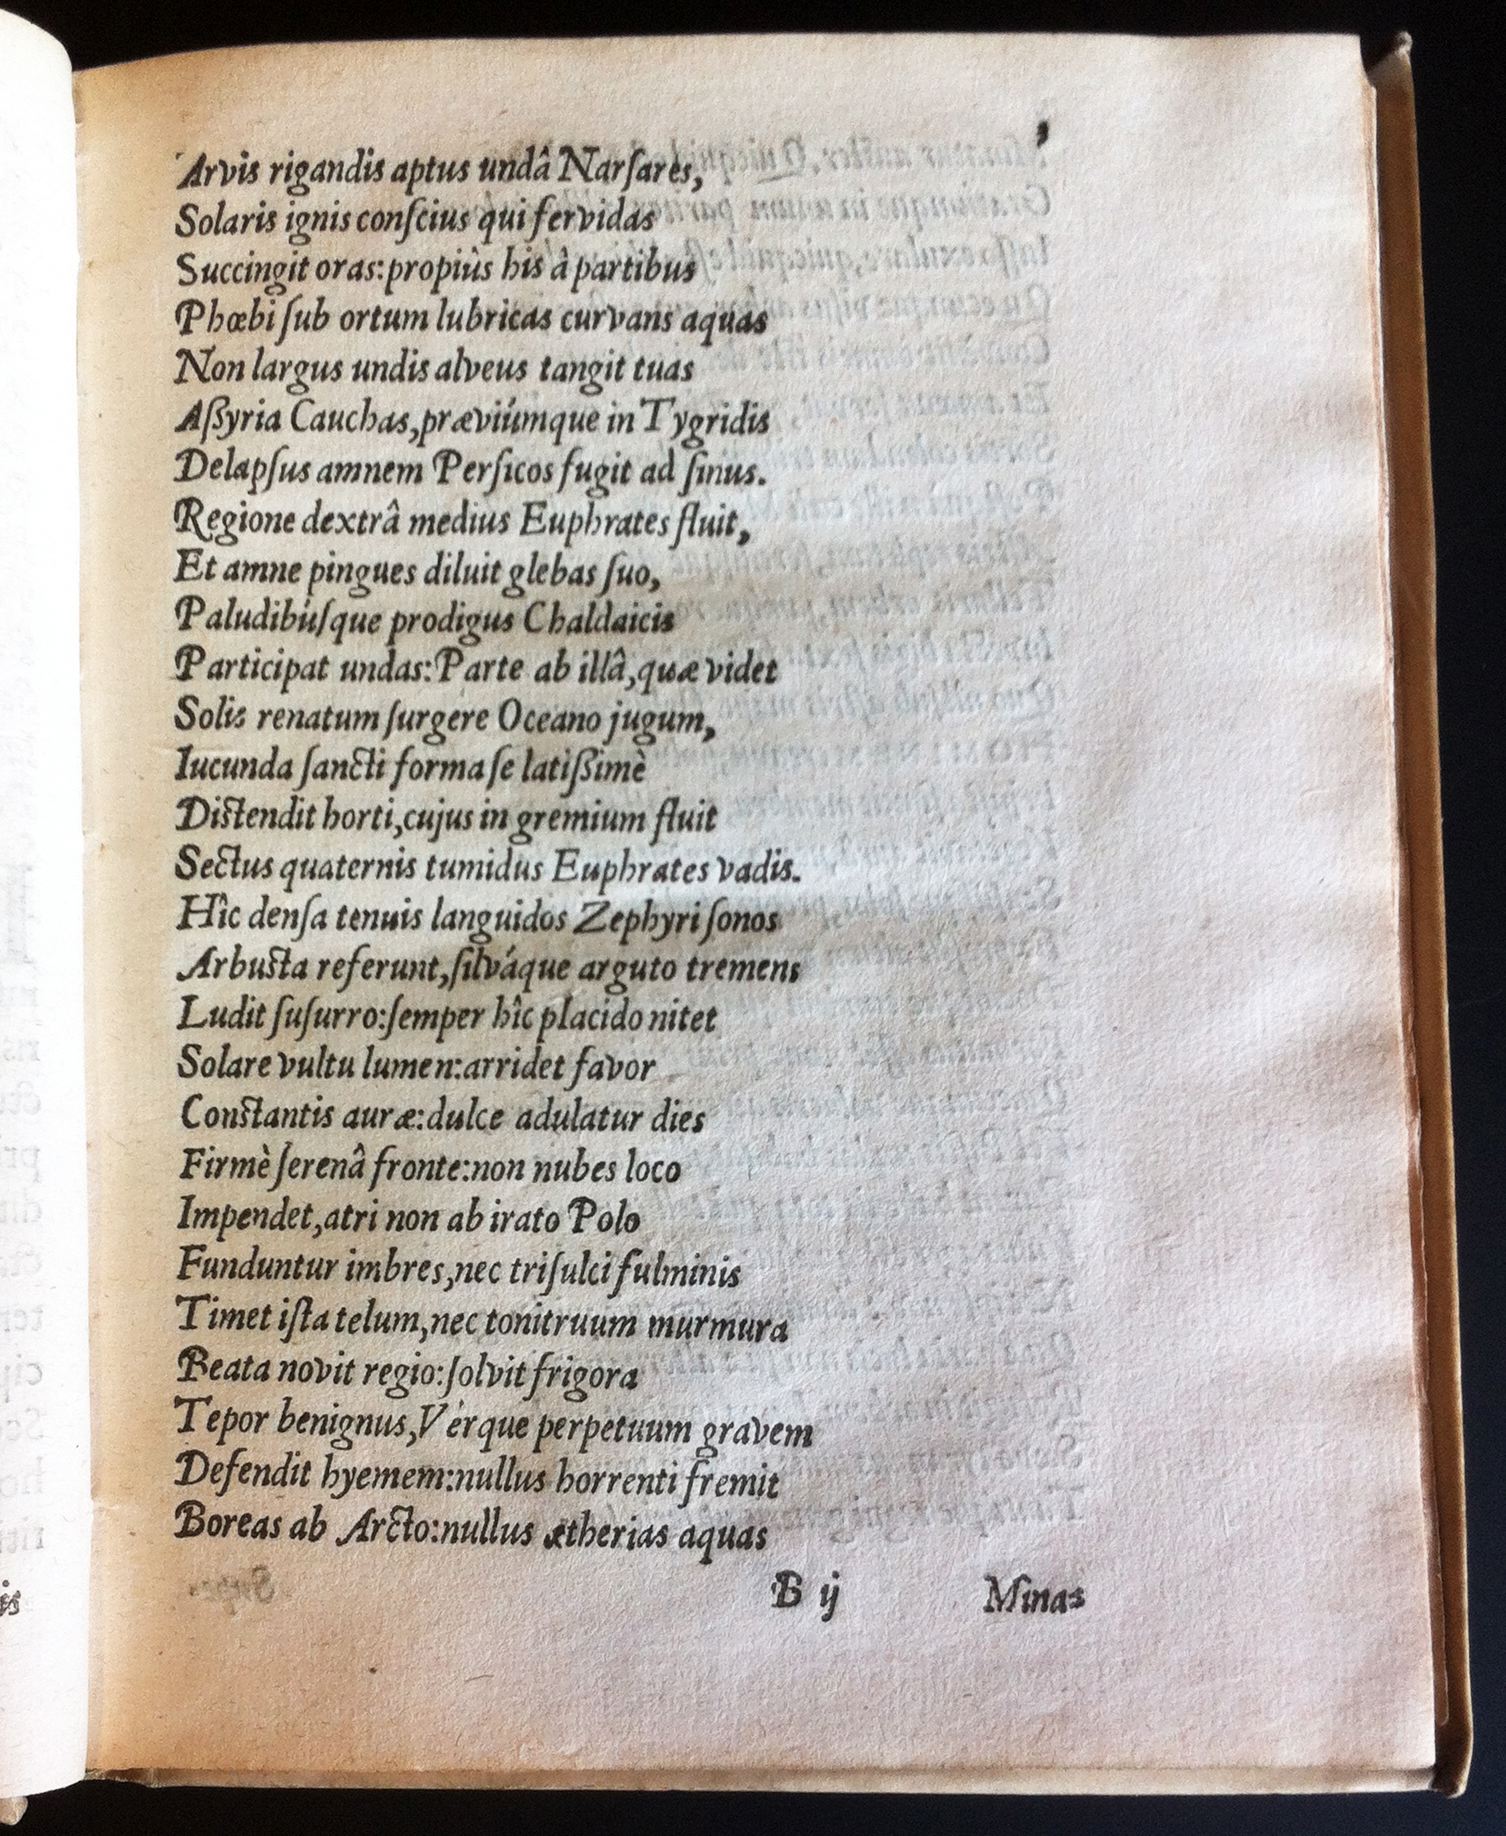 Arvis rigandis aptus undâ Narſares,
Solaris ignis conſcius qui fervidas
Succingit oras: propiùs his â partibus
Phœbi ſub ortum lubricas curvans aquas
Non largus undis alveus tangit tuas
Aßyria Cauchas, præviúmque in Tygridis
Delapſus amnem Perſicos fugit ad ſinus.
Regione dextrâ medius Euphrates fluit,
Et amne pingues diluit glebas ſuo,
Paludibúſque prodigus Chaldaicis
Participat undas: Parte ab illâ, quæ videt
Solis renatum ſurgere Oceano jugum,
Iucunda ſancti forma ſe latißimè
Distendit horti, cujus in gremium fluit
Sectus quaternis tumidus Euphrates vadis.
Hîc denſa tenuis languidos Zephyri ſonos
Arbusta referunt, ſilváque arguto tremens
Ludit ſuſurro: ſemper hîc placido nitet
Solare vultu lumen: arridet favor
Constantis auræ: dulce adulatur dies
Firmè ſerenâ fronte: non nubes loco
Impendet, atri non ab irato Polo
Funduntur imbres, nec triſulci fulminis
Timet iſta telum, nec tonitruum murmura
Beata novit regio: ſolvit frigora
Tepor benignus, Vérque perpetuum gravem
Defendit hyemem: nullus horrenti fremit
Boreas ab Arcto: nullus ætherias aquas
B ij Minas